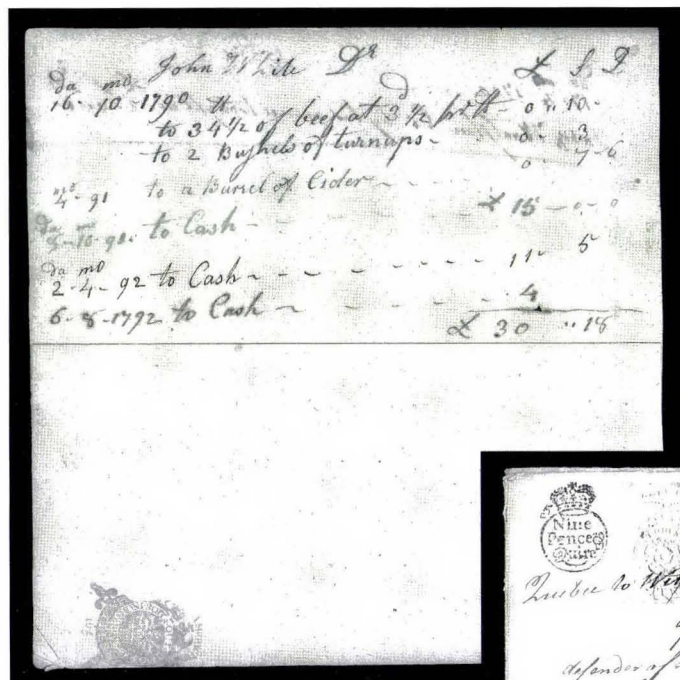 John White Dr £ S D
da mo
16 - 10 - 1790 tt d
to 34 1/2 of beef at 3 1/2 pr tt - 0 " 10 -
to 2 Bushels of turnups - 0 - 3
0 - 7 - 6
mo
4 - 91 to a Barrel of Cider - - - -
£ 15 - 0 - 0
da mo
10 - 91 to Cash - - - -
11 - 5
da mo
2 - 4 - 92 to Cash - - - - - - -
4
6 - 8 - 1792 to Cash - - - - -
£ 30 " 18
Nine
Pence
Quire
Quebec to Wit
defender of